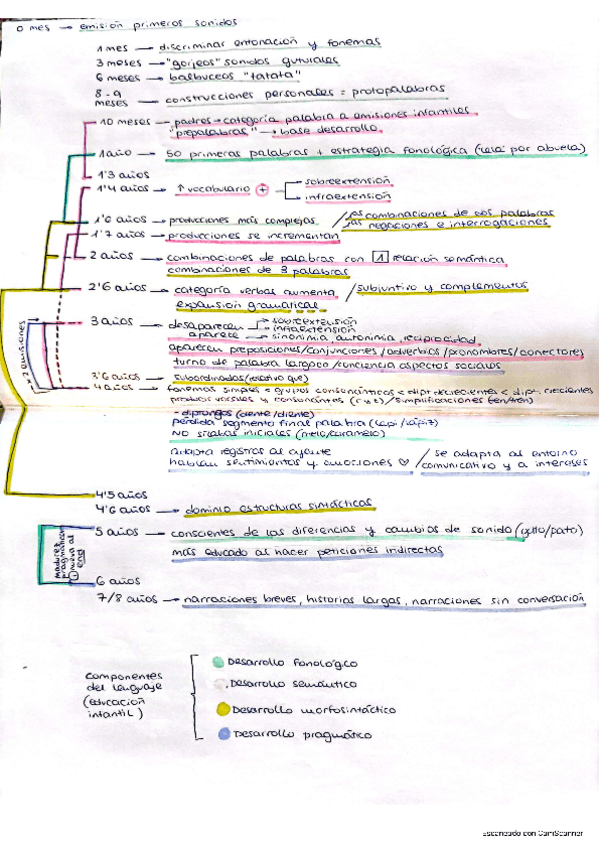 0 mes → emisión primeros sonidos
1 mes → discriminar entonación y fonemas
3 meses → "gorjeos" sonidos guturales
6 meses → balbuceos "tatata"
8 - 9 meses → construcciones personales = protopalabras
10 meses → padres → categoría palabra a emisiones infantiles
"prepalabras" → base desarrollo
1 año → 50 primeras palabras + estrategia fonológica (lela por abuela)
1'3 años
1'4 años → ↑ vocabulario + sobreextensión
infraextensión
1'6 años → producciones más complejas / combinaciones de dos palabras
negaciones e interrogaciones
1'7 años → producciones se incrementan
2 años → combinaciones de palabras con 1 relación semántica
combinaciones de 3 palabras
2'6 años → categoría verbas aumenta / subjuntivo y complementos
expansión gramatical
3 años → desaparecen sobreextensión
infraextensión
aparece → sinonimia autonomia, reciprocidad
aparecen preposiciones/conjunciones/adverbios/pronombres/conectores
turno de palabra largoca/conciencia aspectos sociales
emisiones
3'6 años → subordinadas (relativo que)
4 años → fonemas simples < grupos consonánticos < dipt. decrecientes < dipt. crecientes
vocales y consonantes /simplificaciones (en/tren)
- diptongos (dente/diente)
pérdida segmento final palabra (lapi/lápiz)
NO sílabas iniciales (melo/caramelo)
Adapta registros al oyente / se adapta al entorno
hablan sentimientos y emociones ♡ comunicativo y a intereses
4'5 años
4'6 años → dominio estructuras sintácticas
5 años → conscientes de las diferencias y cambios de sonido (gato/pato)
más educado al hacer peticiones indirectas
6 años
7/8 años → narraciones breves, historias largas, narraciones sin conversación
componentes del lenguaje (educación infantil)
Desarrollo fonológico
Desarrollo semántico
Desarrollo morfosintáctico
Desarrollo pragmático
Escaneado con CamScanner